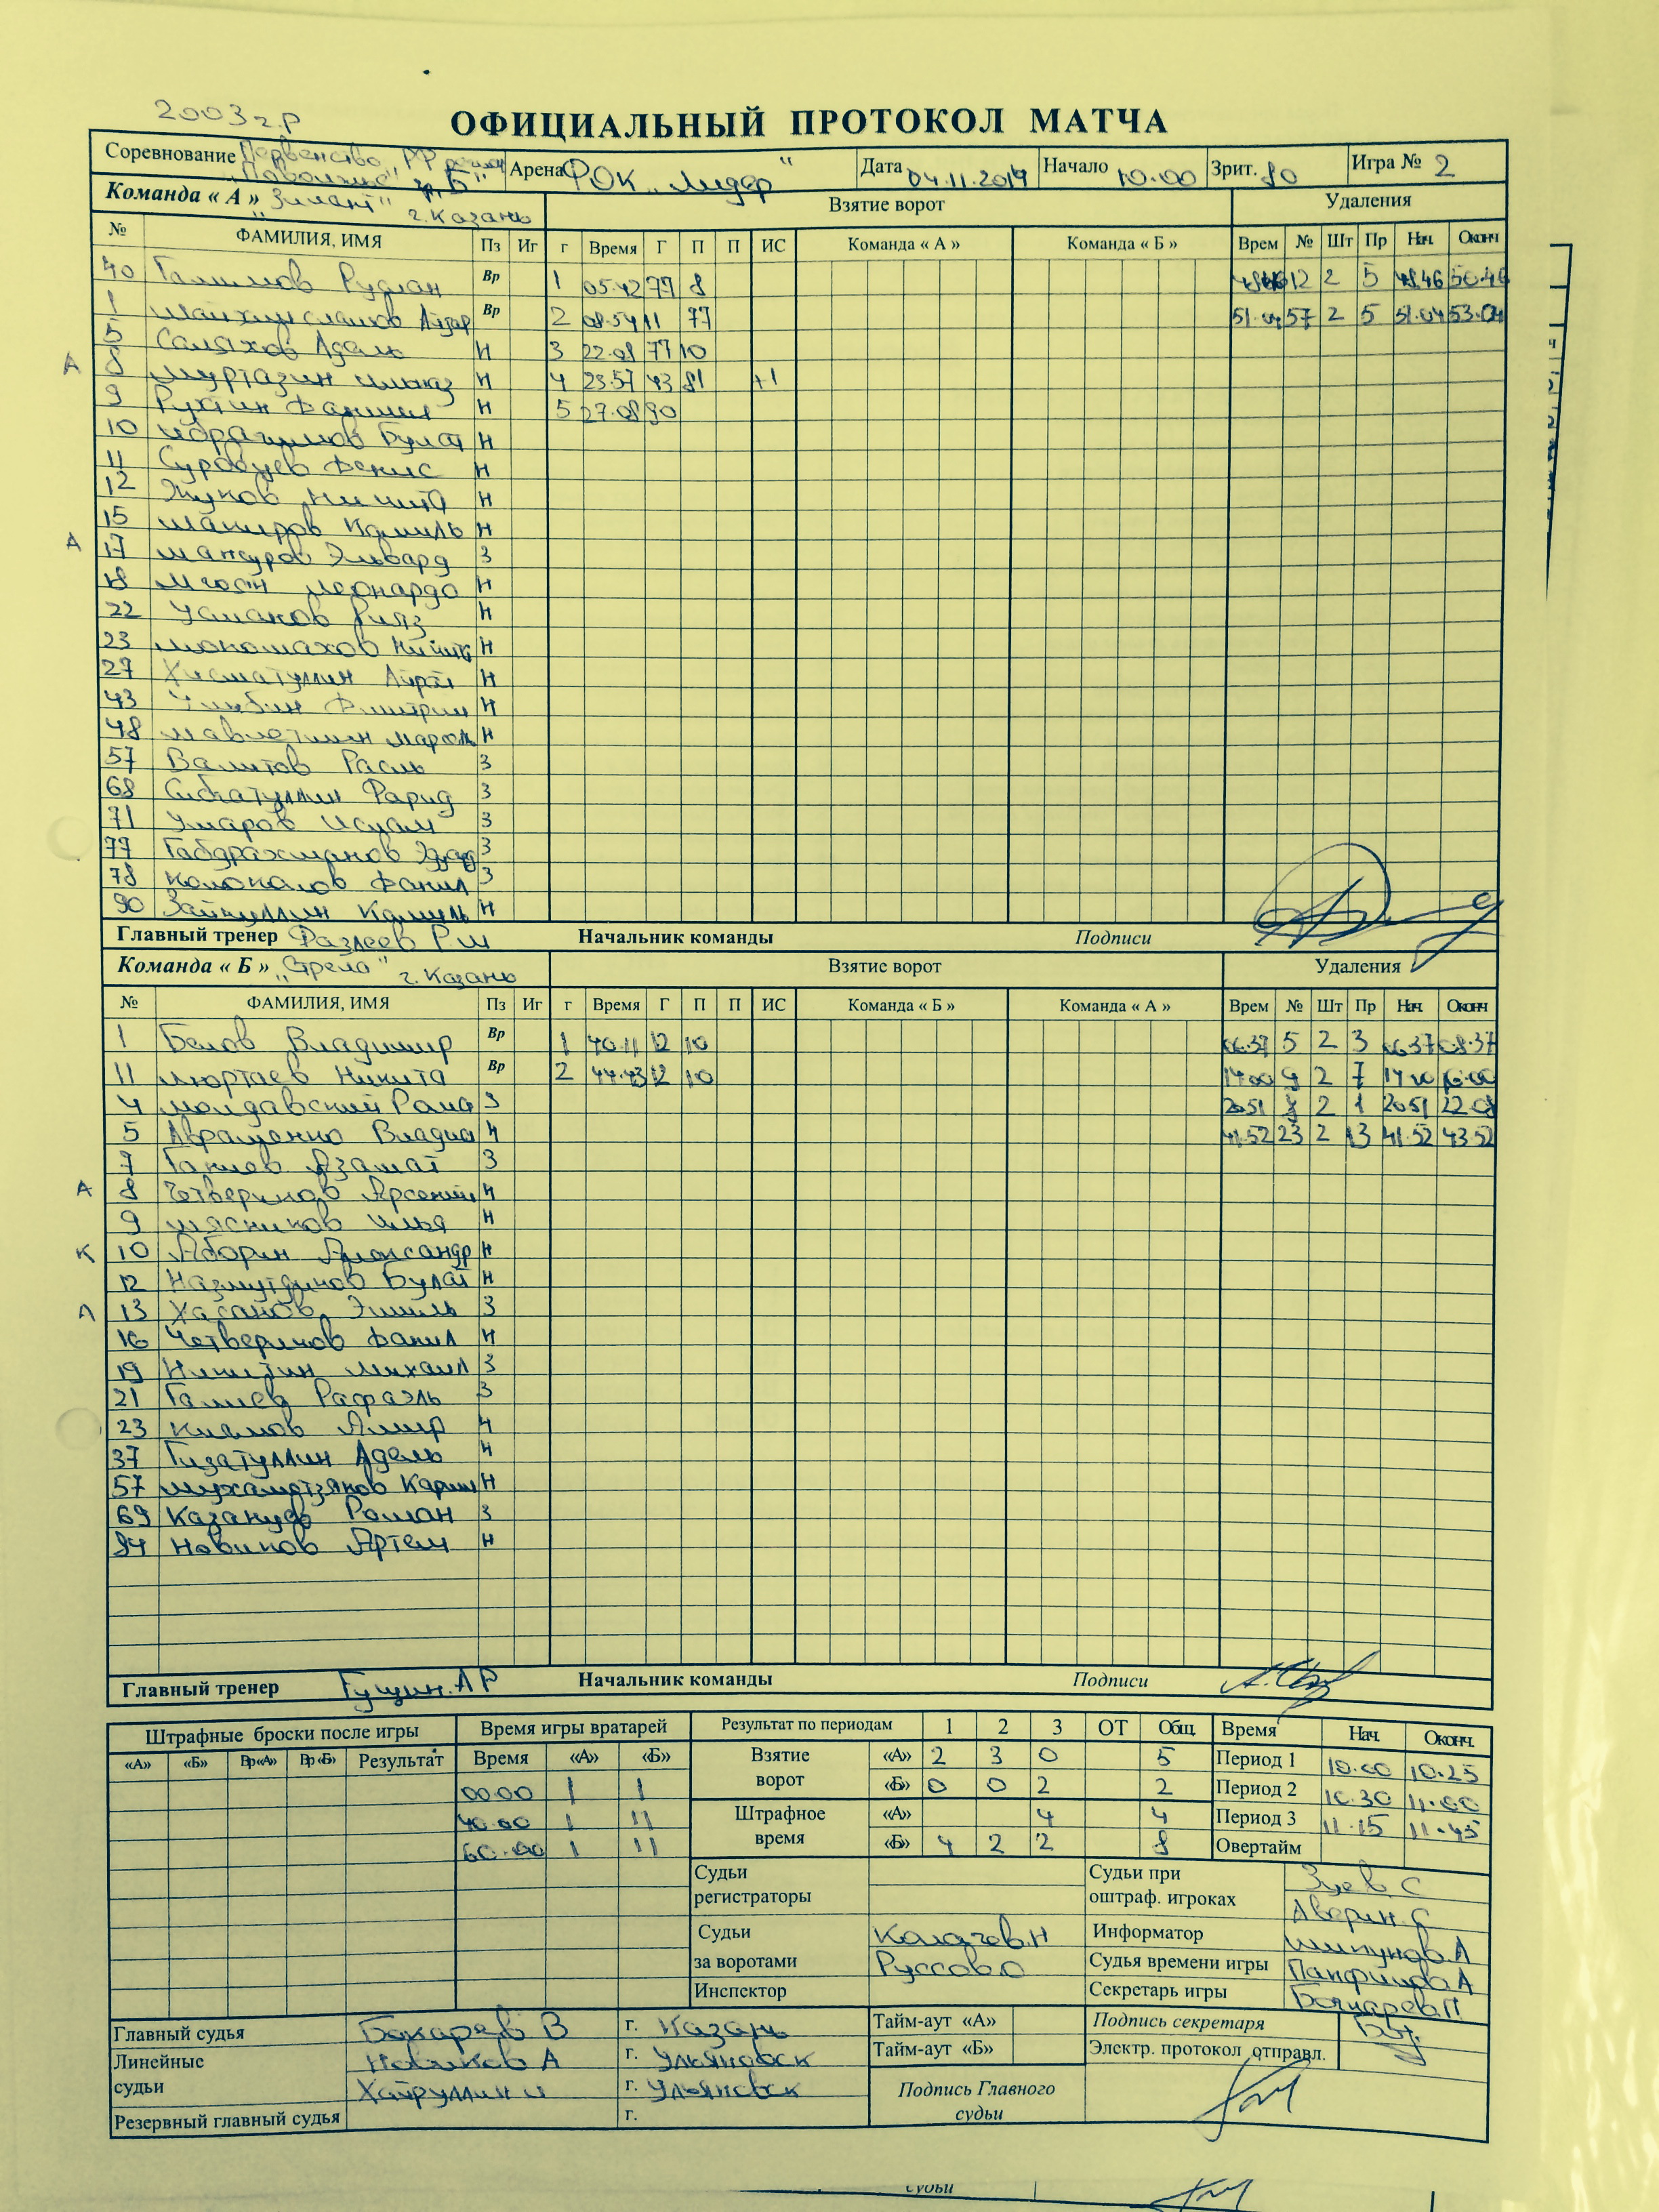 2003 г.р
ОФИЦИАЛЬНЫЙ ПРОТОКОЛ МАТЧА
Соревнование Первенство РФ Арена ФОК „Лидер" Дата 04.11.2019 Начало 10.00 Зрит. 80 Игра № 2
"Поволжье" "Б"
Команда « А » "Зилант" г. Казань Взятие ворот Удаления
№ ФАМИЛИЯ, ИМЯ Пз Иг г Время Г П П ИС Команда « А » Команда « Б » Врем № Шт Пр Нач. Оконч
40 Галимов Руслан Вр 1 05.42 77 8 12 2 5 48.46 50.46
1 Айзар Вр 2 08.54 11 77 51.04 57 2 5 51.04 53.04
5 Саляхов Адель Н 3 22.08 77 10
А 8 Муртазин Ильназ Н 4 23.57 43 81 +1
9 Н 5 27.08 90
10 Ибрагимов Булат Н
11 Денис Н
12 Жуков Никита Н
15 Шакиров Камиль Н
А 17 Мансуров Эльвард З
18 Мгоян Леонардо Н
22 Усманов Рияз Н
23 Мономахов Никита Н
27 Хисматуллин Айрат Н
43 Дмитрий Н
48 Мавлетшин Марсель Н
57 Валитов Расль З
68 Сибгатуллин Фарид З
71 Умаров Ислам З
77 Габдрахманов Эдуард З
78 Колоколов Данил З
90 Зайнуллин Камиль Н
Главный тренер Фазлеев Р.Ш Начальник команды Подписи
Команда « Б » „Стрела" г. Казань Взятие ворот Удаления
№ ФАМИЛИЯ, ИМЯ Пз Иг г Время Г П П ИС Команда « Б » Команда « А » Врем № Шт Пр Нач. Оконч
1 Белов Владимир Вр 1 40.11 12 10 06.37 5 2 3 06.37 08.37
11 Мюртаев Никита Вр 2 44.43 12 10 14.00 9 2 7 14.00 16.00
4 Молдавский Рома З 20.51 8 2 1 20.51 22.08
5 Аврященко Владис Н 41.52 23 2 13 41.52 43.52
7 Ганиев Азамат З
А 8 Четвериков Арсений Н
9 Мясников Илья Н
К 10 Яборин Александр Н
12 Назмутдинов Булат Н
А 13 Хасанов Эмиль З
16 Четвериков Данил Н
19 Никитин Михаил З
21 Галиев Рафаэль З
23 Киямов Амир Н
37 Гизатуллин Адель Н
57 Мухаметзянов Карим Н
69 Роман З
84 Новиков Артем Н
Главный тренер Гущин.АР Начальник команды Подписи
Штрафные броски после игры Время игры вратарей Результат по периодам 1 2 3 ОТ Общ. Время Нач. Оконч.
«А» «Б» Вр«А» Вр«Б» Результат Время «А» «Б» Взятие ворот «А» 2 3 0 5 Период 1 10.00 10.25
00.00 1 1 «Б» 0 0 2 2 Период 2 10.30 11.00
40.00 1 11 Штрафное время «А» 4 4 Период 3 11.15 11.45
60.00 1 11 «Б» 4 2 2 8 Овертайм
Судьи регистраторы Судьи при оштраф. игроках Зуев С
Аверин. С
Судьи Калачев.Н Информатор Шипунова.А
за воротами Руссов.О Судья времени игры Панфилова.А
Инспектор Секретарь игры Бочкарев.П
Главный судья Бокарев В г. Казань Тайм-аут «А» Подпись секретаря
Линейные Новиков А г. Ульяновск Тайм-аут «Б» Электр. протокол отправл.
судьи Хайруллин И г. Ульяновск Подпись Главного
Резервный главный судья г. судьи
судьи